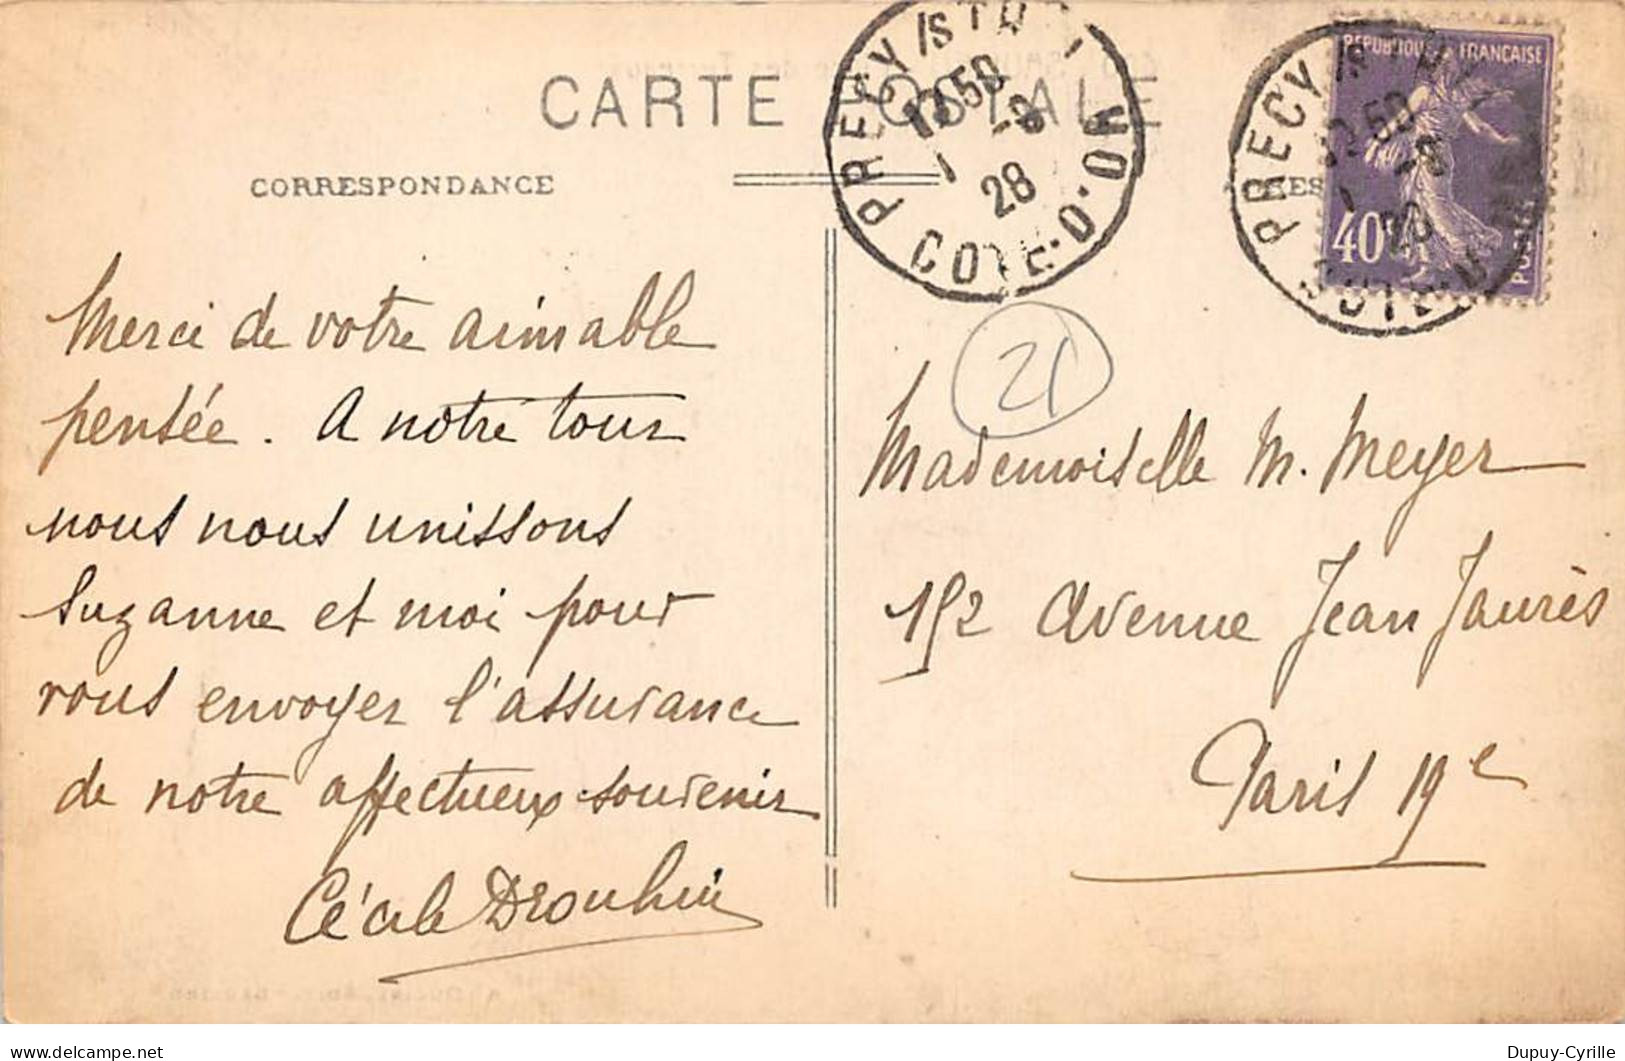 CARTE POSTALE
CORRESPONDANCE
PRECY /S
12 50
1 -9
28
COTE-D'OR
REPUBLIQUE FRANCAISE
40c
POSTES
PRECY
COTE
21
Merci de votre aimable
pensée. A notre tour
nous nous unissons
Suzanne et moi pour
vous envoyer l'assurance
de notre affectueux souvenir
Cécile Drouhin
Mademoiselle M. Meyer
152 Avenue Jean Jaurès
Paris 19e
Dupuy-Cyrille